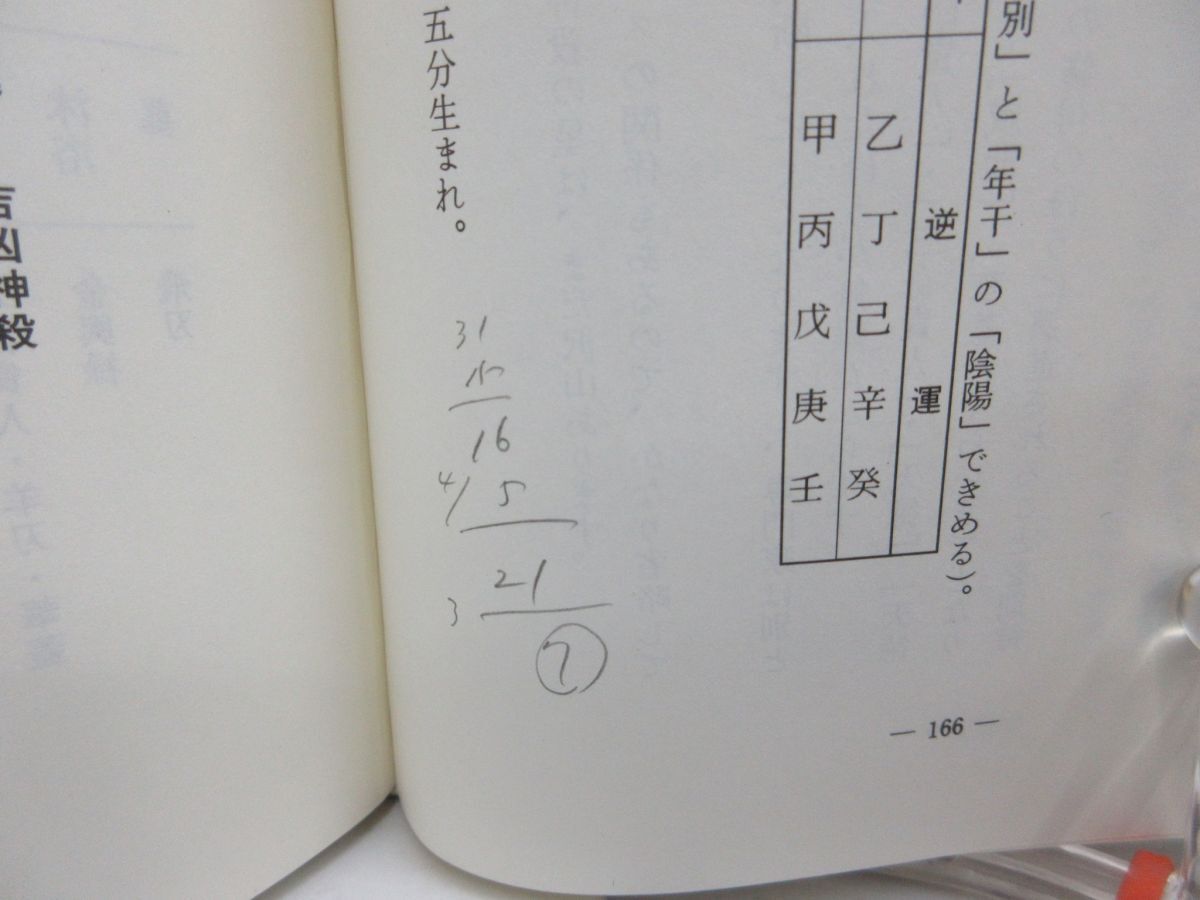 別」と「年干」の「陰陽」できめる)。
逆運
乙丁己辛癸
甲丙戊庚壬
五分生まれ。
31
16
4/5
21
3
7
— 166 —
吉凶神殺